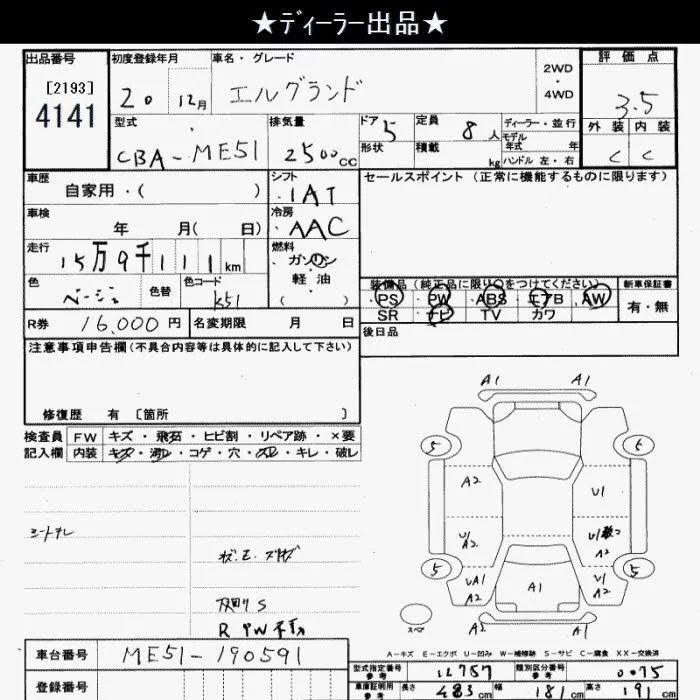 ★ディーラー出品★
出品番号
[2193]
4141
初度登録年月
20 12月
車名・グレード
エルグランド
2WD
・
4WD
評価点
3.5
外装 内装
C C
型式
CBA-ME51
排気量
2500cc
ドア 5
形状
定員 8人
積載 kg
ディーラー・並行
モデル
年式 年
ハンドル 左・右
車歴
自家用・( )
シフト
IAT
セールスポイント(正常に機能するものに限ります)
車検
年 月( 日)
冷房
AAC
走行
15万9千111km
燃料
ガソリン
軽油
( )
色
ベージュ
色替
色コード
K51
装備品(純正品に限り○をつけてください)
PS PW ABS エアB AW
SR ナビ TV カワ
新車保証書
有・無
R券 16,000円
名変期限 月 日
後日品
注意事項申告欄(不具合内容等は具体的に記入して下さい)
修復歴 有〔箇所 〕
検査員
記入欄
FW キズ・飛石・ヒビ割・リペア跡・×要
内装 キズ・汚レ・コゲ・穴・スレ・キレ・破レ
シートテレ
下廻りS
A1 A1
5 6
A2 U1
U1
A2
A2
5 5
UA1
A2
A1
U1
A2
A2 A2
スペア
A-キズ E-エクボ U-凹み W-補修跡 S-サビ C-腐食 XX-交換済
車台番号 ME51-190591
登録番号
型式指定番号
参考
類別区分番号
参考
0075
車庫証明用
参考
長さ 483cm 幅 181cm 高さ 191cm